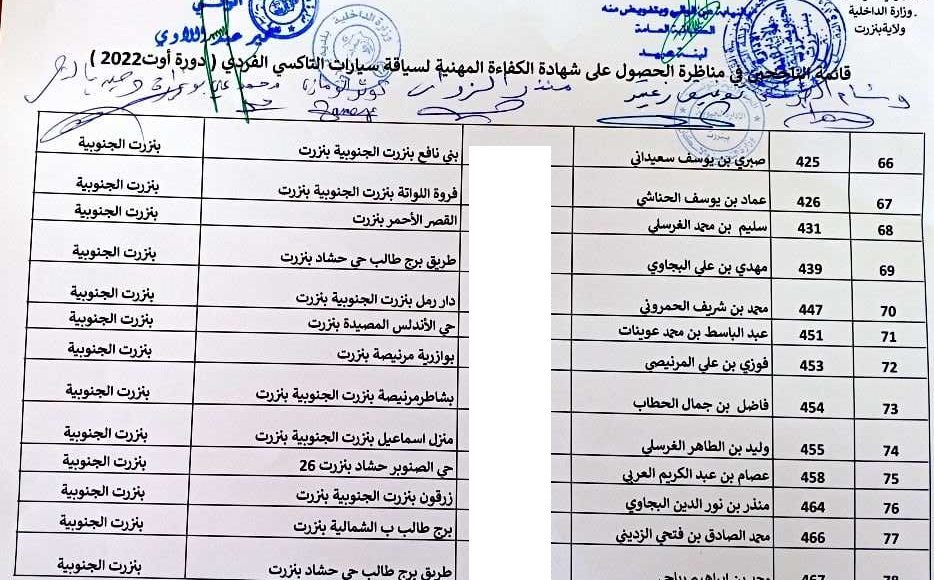 وزارة الداخلية
ولاية بنزرت
قائمة الناجحين في مناظرة الحصول على شهادة الكفاءة المهنية لسياقة سيارات التاكسي الفردي ( دورة أوت 2022 )
66 425 صبري بن يوسف سعيداني بني نافع بنزرت الجنوبية بنزرت بنزرت الجنوبية
67 426 عماد بن يوسف الحناشي فروة اللواتة بنزرت الجنوبية بنزرت بنزرت الجنوبية
68 431 سليم بن محمد الغرسلي القصر الأحمر بنزرت بنزرت الجنوبية
69 439 مهدي بن علي البجاوي طريق برج طالب حي حشاد بنزرت بنزرت الجنوبية
70 447 محمد بن شريف الحمروني دار رمل بنزرت الجنوبية بنزرت بنزرت الجنوبية
71 451 عبد الباسط بن محمد عوينات حي الأندلس المصيدة بنزرت بنزرت الجنوبية
72 453 فوزي بن علي المرنيصي بوازرية مرنيصة بنزرت بنزرت الجنوبية
73 454 فاضل بن جمال الحطاب بشاطرمرنيصة بنزرت الجنوبية بنزرت بنزرت الجنوبية
74 455 وليد بن الطاهر الغرسلي منزل اسماعيل بنزرت الجنوبية بنزرت بنزرت الجنوبية
75 458 عصام بن عبد الكريم العربي حي الصنوبر حشاد بنزرت 26 بنزرت الجنوبية
76 464 منذر بن نور الدين البجاوي زرقون بنزرت الجنوبية بنزرت بنزرت الجنوبية
77 466 محمد الصادق بن فتحي الزديني برج طالب ب الشمالية بنزرت بنزرت الجنوبية
78 467 طريق برج طالب حي حشاد بنزرت بنزرت الجنوبية